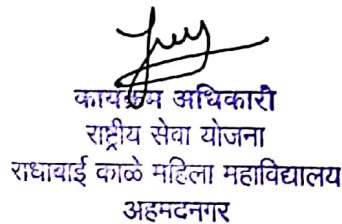 कार्यक्रम अधिकारी
राष्ट्रीय सेवा योजना
राधाबाई काळे महिला महाविद्यालय
अहमदनगर